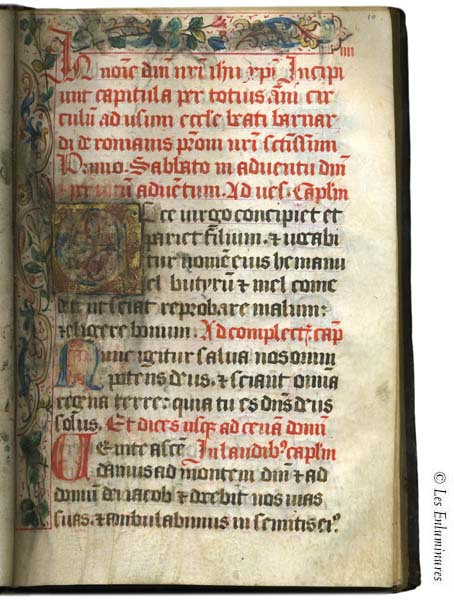 10
iiii
In noie dni nri ihu xpi Incipi
unt capitula per totius ani cir
culum ad usum eccle beati barnar
di de romanis proni nri sctissim
Primo. Sabbato in adventu dni
& per totum adventum. Ad ves. Caplm
Ecce virgo concipiet et
pariet filium. & vocabi
tur nomen eius hemanu
el butyru & mel come
det ut sciat reprobare malum:
& eligere bonum. Ad complect. cap
Nunc igitur salva nos omni
potens deus. & sciant omnia
regna terre: quia tu es dns deus
solus. Et dices usq ad cena domi
Venite ascen In laudib9 caplm
damus ad montem dni & ad
domu dei iacob & docebit nos vias
suas. & ambulabimus in semitis ei9
© Les Enluminures